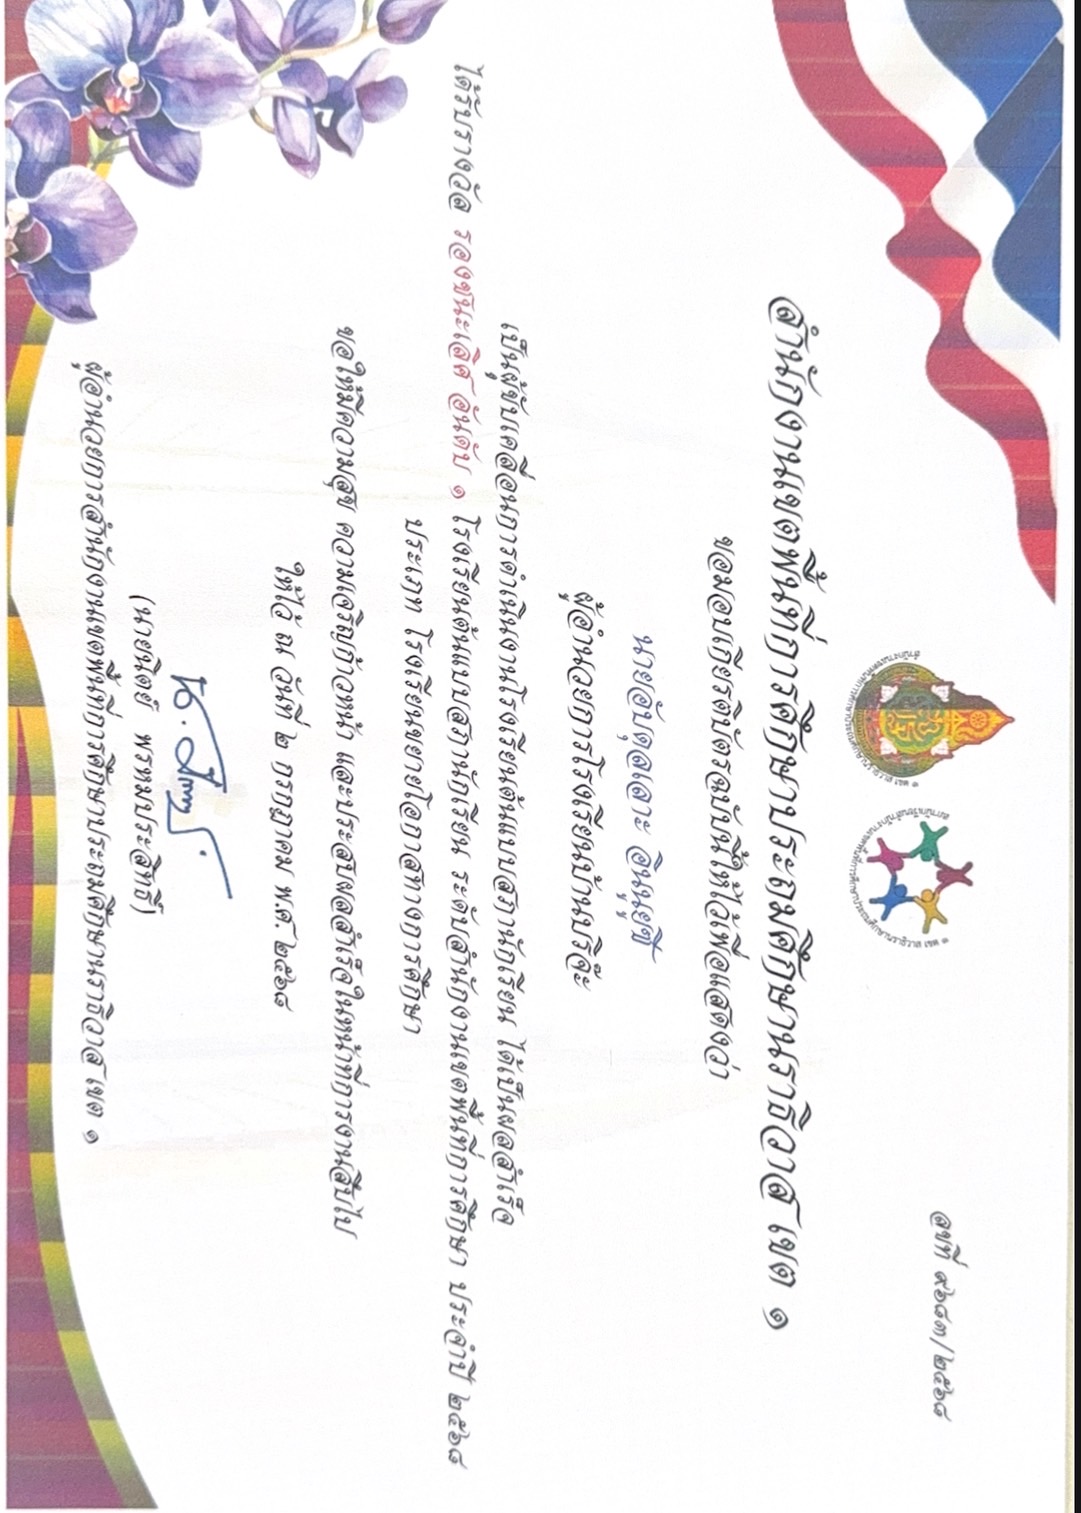 เลขที่ ๙๖๘๓/๒๕๖๘
สำนักงานเขตพื้นที่การศึกษาประถมศึกษานราธิวาส เขต ๑
ขอมอบเกียรติบัตรฉบับนี้ให้ไว้เพื่อแสดงว่า
นายอับดุลเลาะ อินนุยูซี
ผู้อำนวยการโรงเรียนบ้านบริจ๊ะ
เป็นผู้ขับเคลื่อนการดำเนินงานโรงเรียนต้นแบบสภานักเรียน ได้เป็นผลสำเร็จ
ได้รับรางวัล รองชนะเลิศ อันดับ ๑ โรงเรียนต้นแบบสภานักเรียน ระดับสำนักงานเขตพื้นที่การศึกษา ประจำปี ๒๕๖๘
ประเภท โรงเรียนขยายโอกาสทางการศึกษา
ขอให้มีความสุข ความเจริญก้าวหน้า และประสบผลสำเร็จในหน้าที่การงานสืบไป
ให้ไว้ ณ วันที่ ๒ กรกฎาคม พ.ศ. ๒๕๖๘
(นายนิตย์ พรหมประสิทธิ์)
ผู้อำนวยการสำนักงานเขตพื้นที่การศึกษาประถมศึกษานราธิวาส เขต ๑